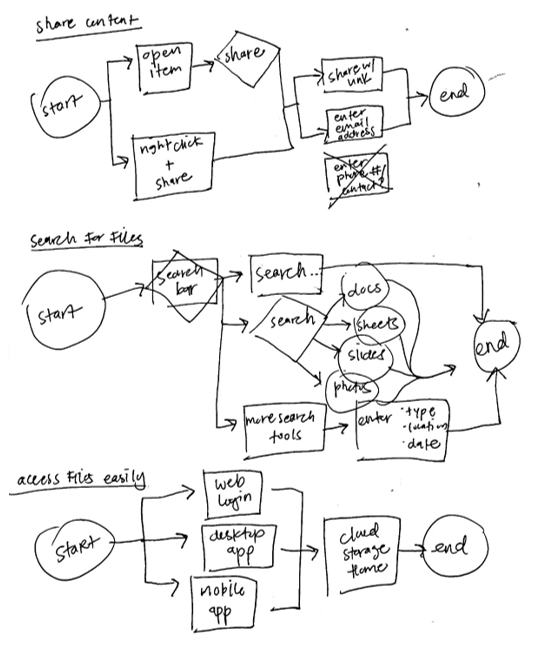 share content
start
open
item
share
right click
+
share
share w/
link
enter
email
address
enter
phone #/
contact?
end
search for files
start
search
bar
search...
search
docs
sheets
slides
photos
more search
tools
enter
· type
· location
· date
end
access files easily
start
web
login
desktop
app
mobile
app
cloud
storage
home
end